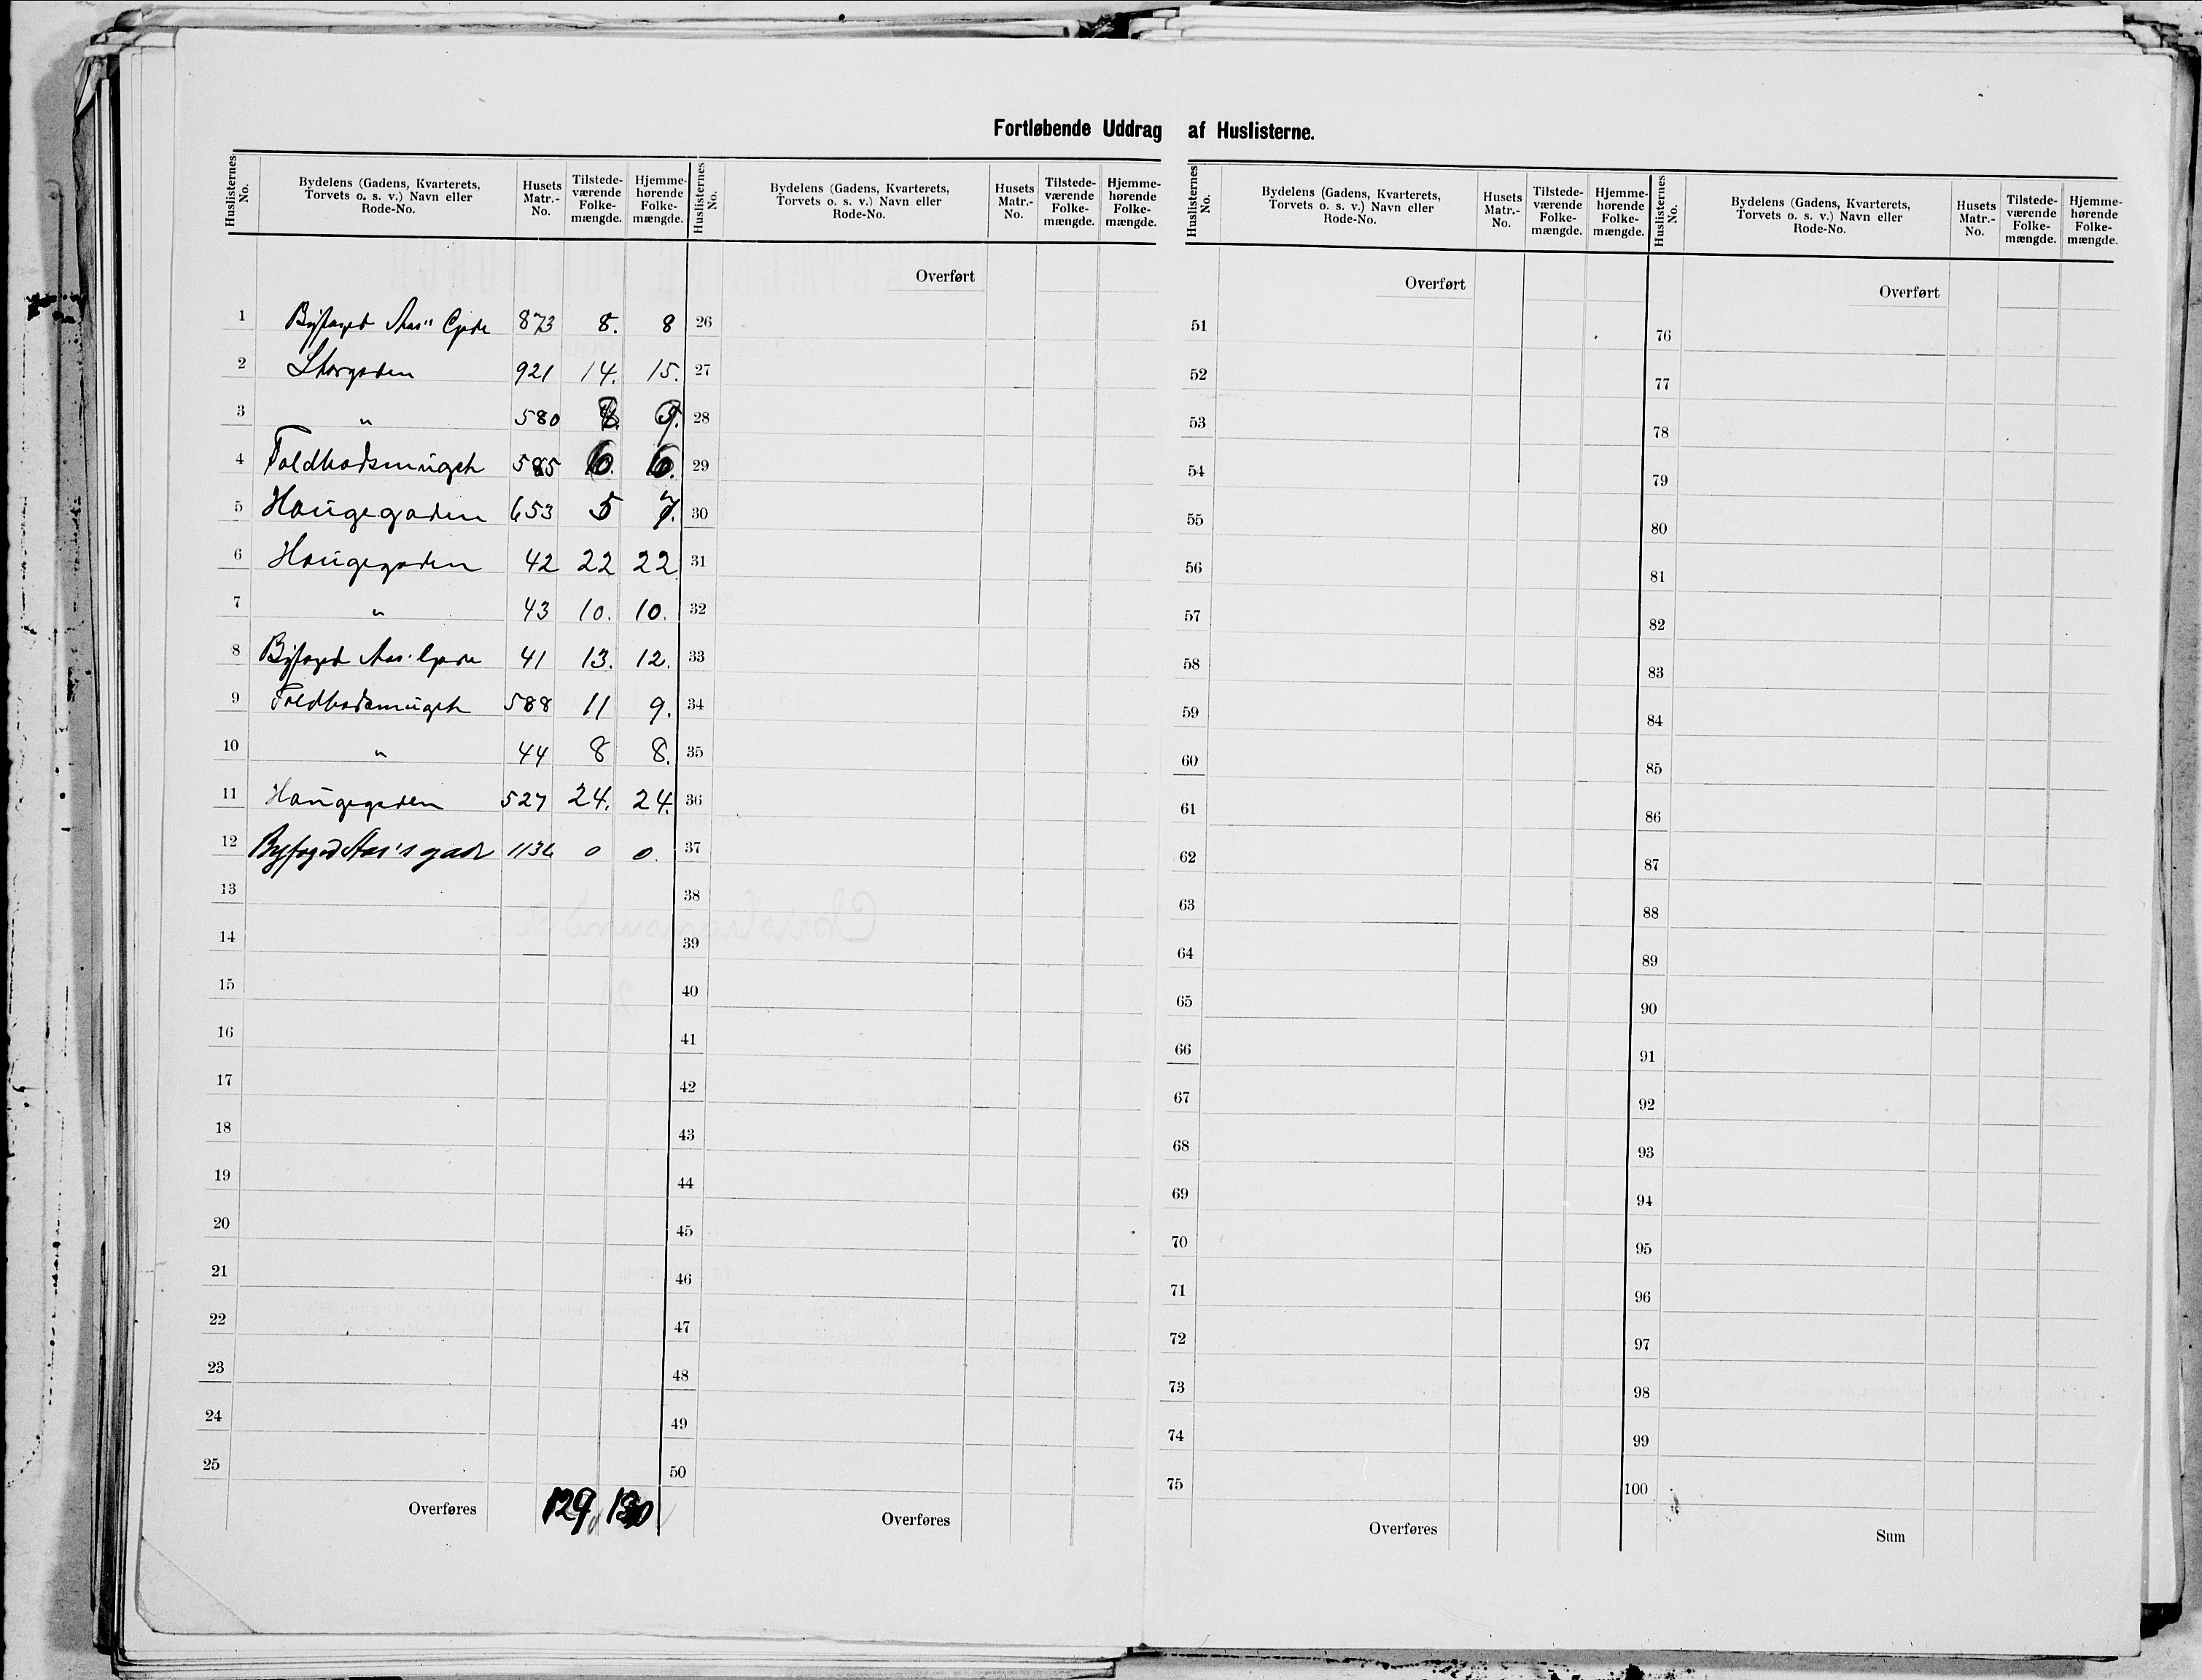 Fortløbende Uddrag af Huslisterne.
Huslisternes No. | Bydelens (Gadens, Kvarterets, Torvets o. s. v.) Navn eller Rode-No. | Husets Matr.-No. | Tilstedeværende Folkemængde. | Hjemmehørende Folkemængde.
Huslisternes No. | Bydelens (Gadens, Kvarterets, Torvets o. s. v.) Navn eller Rode-No. | Husets Matr.-No. | Tilstedeværende Folkemængde. | Hjemmehørende Folkemængde.
Huslisternes No. | Bydelens (Gadens, Kvarterets, Torvets o. s. v.) Navn eller Rode-No. | Husets Matr.-No. | Tilstedeværende Folkemængde. | Hjemmehørende Folkemængde.
Huslisternes No. | Bydelens (Gadens, Kvarterets, Torvets o. s. v.) Navn eller Rode-No. | Husets Matr.-No. | Tilstedeværende Folkemængde. | Hjemmehørende Folkemængde.
Overført Overført Overført
1 Byfoged Aas" Gade 873 8. 8 26 51 76
2 Storgaden 921 14. 15. 27 52 77
3 " 580 8. 9. 28 53 78
4 Toldbodsmuget 585 6. 6. 29 54 79
5 Haugegaden 653 5 7. 30 55 80
6 Haugegaden 42 22 22 31 56 81
7 " 43 10. 10. 32 57 82
8 Byfoged Aas' Gade 41 13. 12. 33 58 83
9 Toldbodsmuget 588 11 9. 34 59 84
10 " 44 8 8. 35 60 85
11 Haugegaden 527 24. 24. 36 61 86
12 Byfoged Aas's gade 0 0. 37 62 87
13 38 63 88
14 39 64 89
15 40 65 90
16 41 66 91
17 42 67 92
18 43 68 93
19 44 69 94
20 45 70 95
21 46 71 96
22 47 72 97
23 48 73 98
24 49 74 99
25 50 75 100
Overføres 129 130 Overføres Overføres Sum